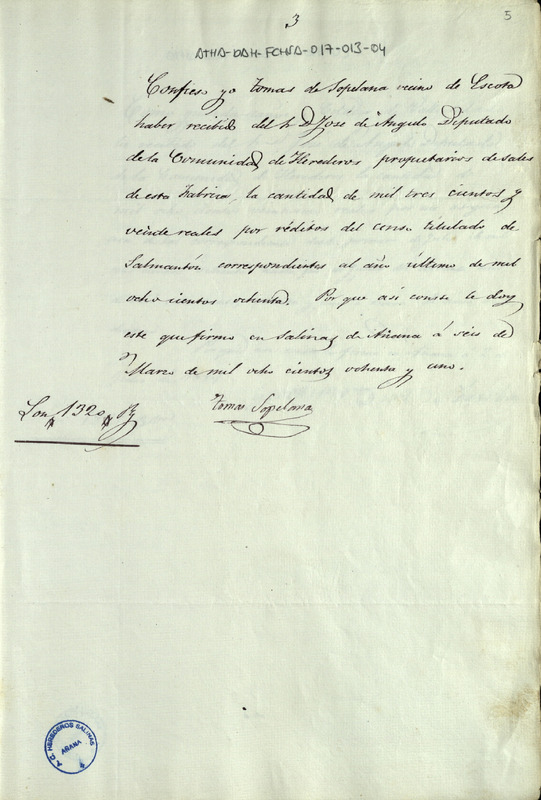 3
5
ATHA-DAH-FCHSA-017-013-04
Confieso yo Tomas de Sopelana vecino de Escota
haber recibido del Sr. D. José de Angulo Diputado
de la Comunidad de Herederos propietarios de sales
de esta Fabrica, la cantidad de mil tres cientos y
veinte reales por réditos del censo titulado de
Salmantón correspondientes al año último de mil
ocho cientos ochenta. Por que asi conste le doy
este que firmo en Salinas de Añana á seis de
Marzo de mil ocho cientos ochenta y uno.
Son 1320 Rs
Tomas Sopelana
HEREDEROS SALINAS
AÑANA